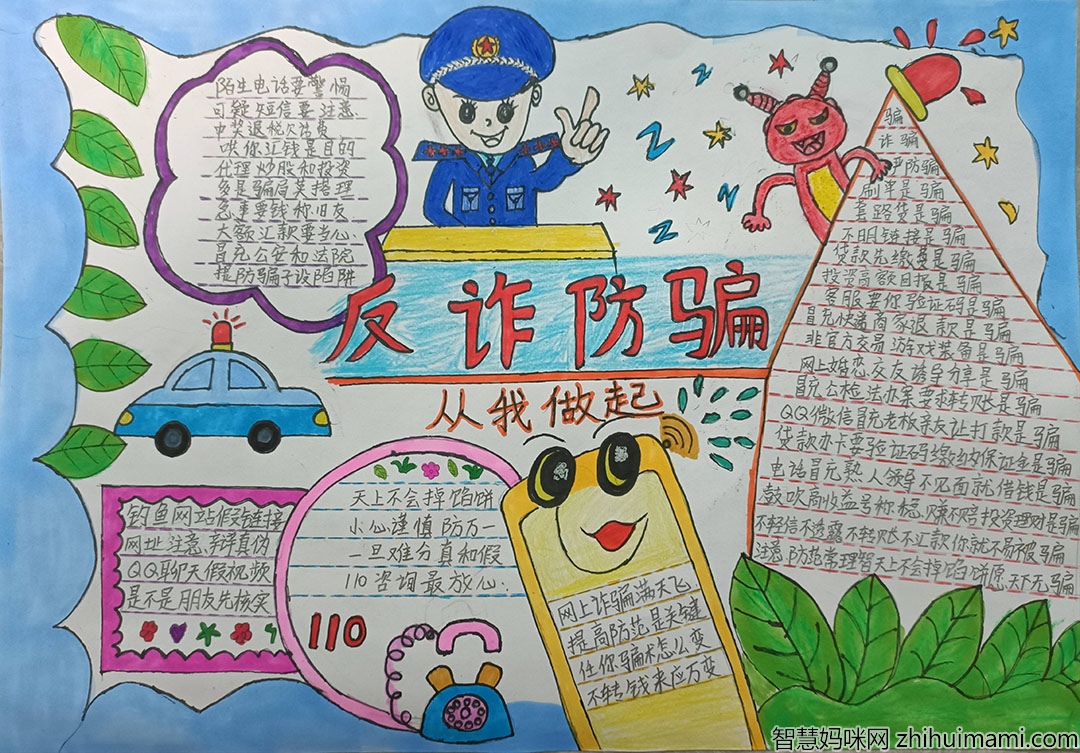 陌生电话要警惕
可疑短信要注意
中奖退税欠话费
哄你汇钱是目的
代理炒股和投资
多是骗局莫搭理
急事要钱称旧友
大额汇款要当心
冒充公安和法院
提防骗子设陷阱
反诈防骗
从我做起
钓鱼网站假链接
网址注意辩真伪
QQ聊天假视频
是不是朋友先核实
天上不会掉馅饼
小心谨慎防万一
一旦难分真和假
110咨询最放心.
110
网上诈骗满天飞
提高防范是关键
任你骗术怎么变
不转钱来应万变
骗
诈骗
严防骗
刷单是骗
套路贷是骗
不明链接是骗
贷款先缴费是骗
投资高额回报是骗
客服要你验证码是骗
冒充快递商家退款是骗
非官方交易游戏装备是骗
网上婚恋交友诱导分享是骗
冒充公检法办案要求转账是骗
QQ微信冒充老板亲友让打款是骗
贷款办卡要验证码缴纳保证金是骗
电话冒充熟人领导不见面就借钱是骗
鼓吹高收益号称稳赚不赔投资理财是骗
不轻信不透露不转账不汇款你就不易被骗
注意防范常理智天上不会掉馅饼愿天下无骗
智慧妈咪网 zhihuimami.com